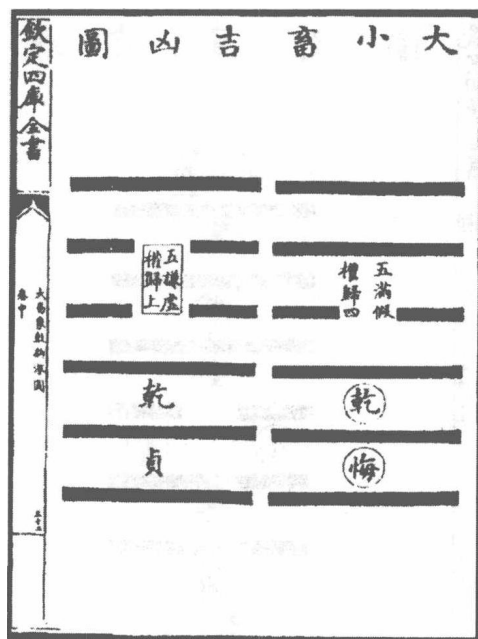 大小畜吉凶圖
五滿假
權歸四
乾
悔
五謙虛
權歸上
乾
貞
欽定四庫全書
大易象數鉤深圖
卷中